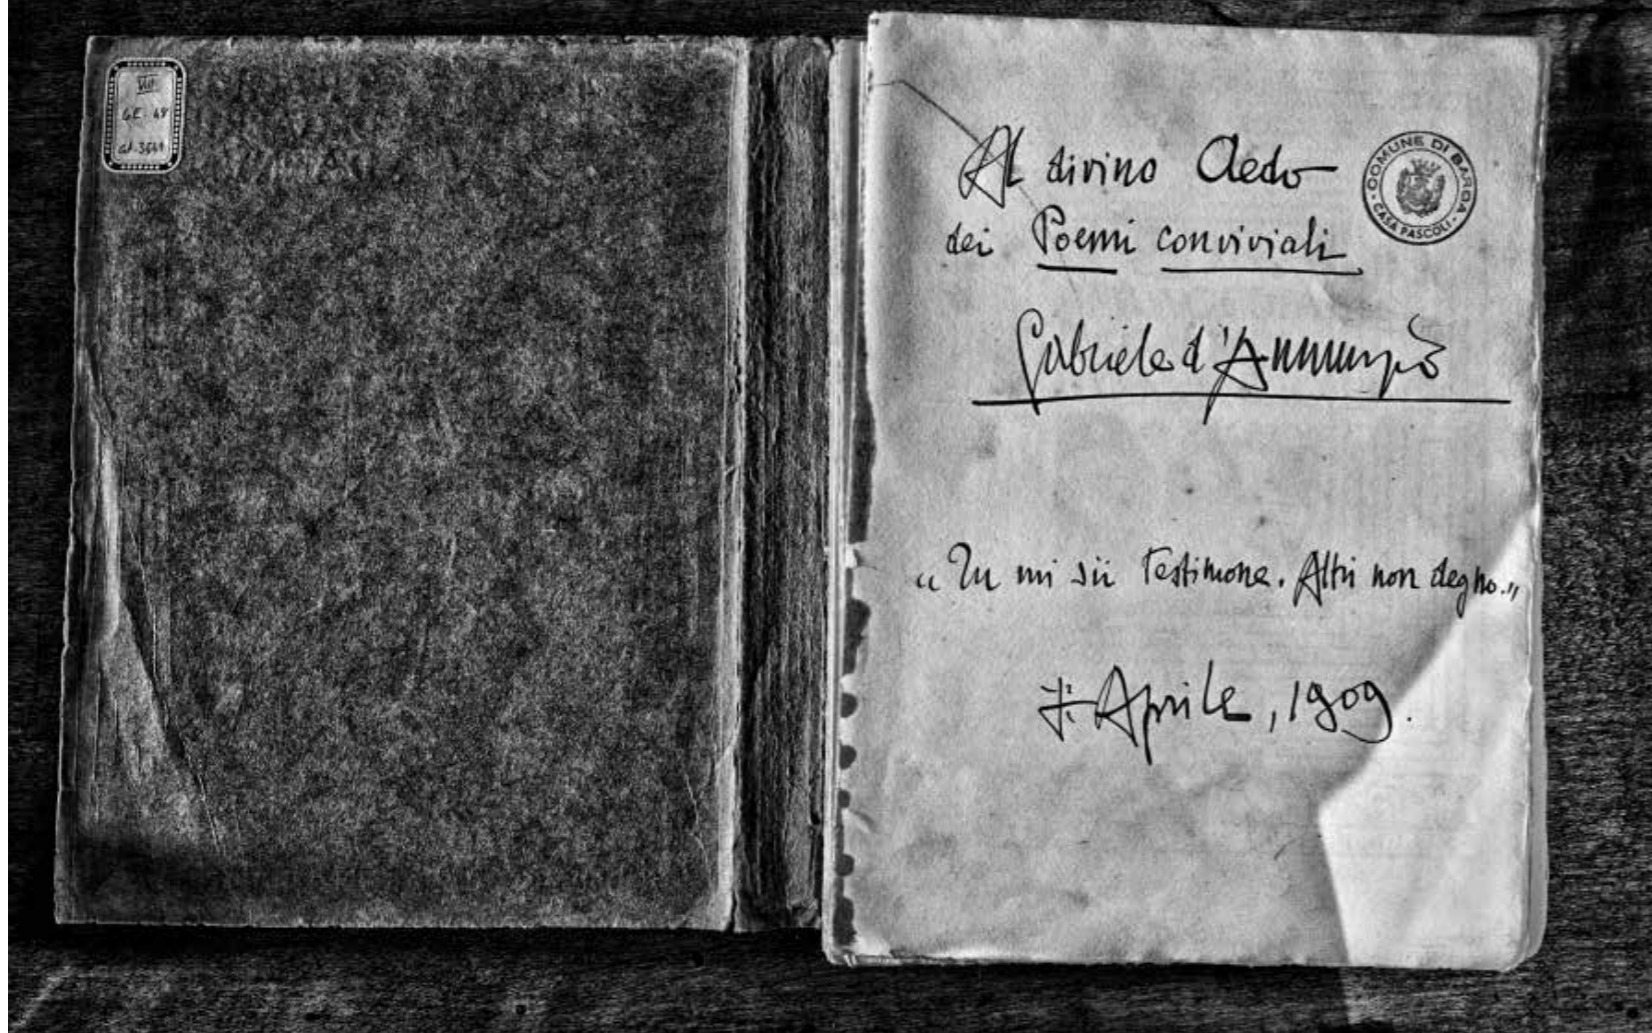 VIII
Al divino Aedo
dei Poemi conviviali
COMUNE DI BARGA
CASA PASCOLI
Gabriele d'Annunzio
“Tu mi sii testimone. Altri non degno.”
Aprile, 1909.